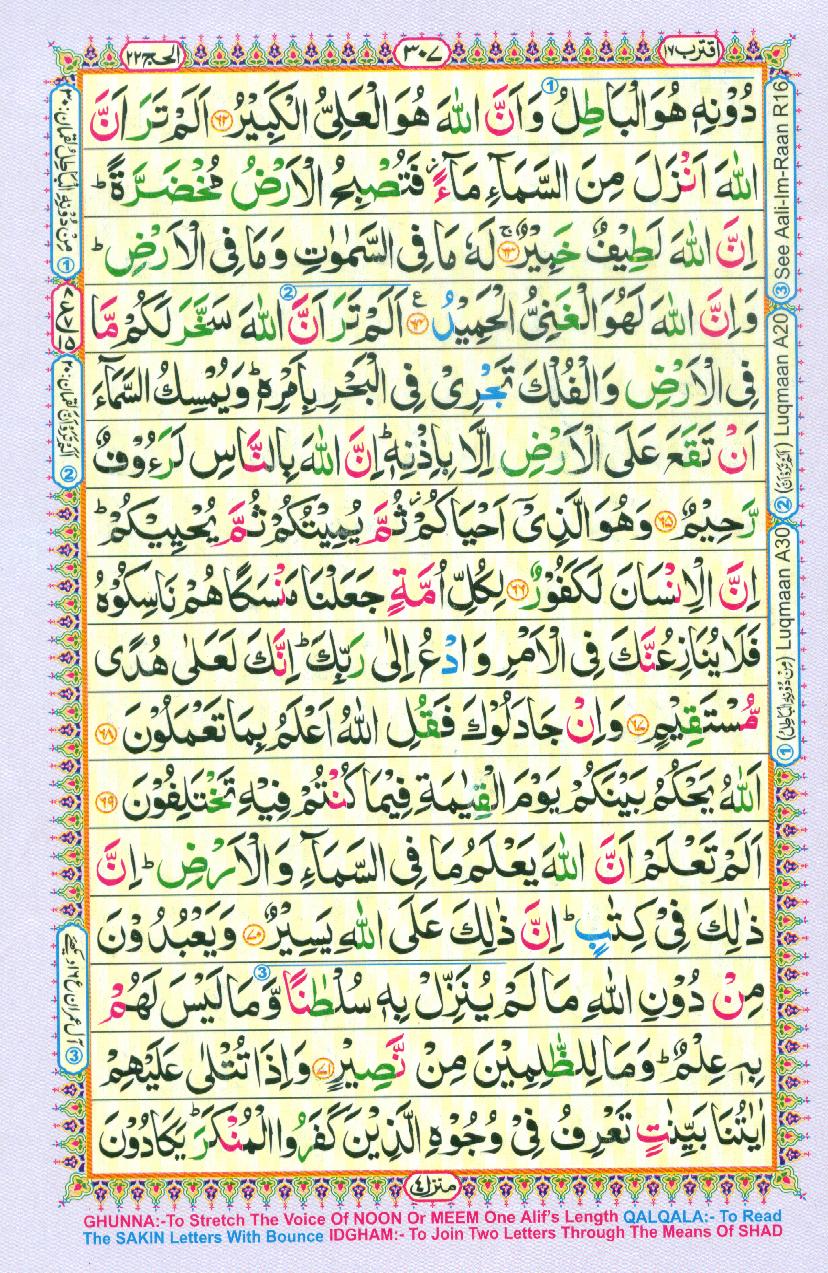 اقترب ١٧
٣٠٧
الحج ٢٢
دُوْنِهٖ هُوَ الْبَاطِلُ وَاَنَّ اللّٰهَ هُوَ الْعَلِیُّ الْكَبِیْرُ ﴿۶۲﴾ اَلَمْ تَرَ اَنَّ
اللّٰهَ اَنْزَلَ مِنَ السَّمَآءِ مَآءً ؗ فَتُصْبِحُ الْاَرْضُ مُخْضَرَّةً ؕ
اِنَّ اللّٰهَ لَطِیْفٌ خَبِیْرٌ ۚ﴿۶۳﴾ لَهٗ مَا فِی السَّمٰوٰتِ وَمَا فِی الْاَرْضِ ؕ
وَاِنَّ اللّٰهَ لَهُوَ الْغَنِیُّ الْحَمِیْدُ ﴿۶۴﴾ ع اَلَمْ تَرَ اَنَّ اللّٰهَ سَخَّرَ لَكُمْ مَّا
فِی الْاَرْضِ وَالْفُلْكَ تَجْرِیْ فِی الْبَحْرِ بِاَمْرِهٖ ؕ وَیُمْسِكُ السَّمَآءَ
اَنْ تَقَعَ عَلَی الْاَرْضِ اِلَّا بِاِذْنِهٖ ؕ اِنَّ اللّٰهَ بِالنَّاسِ لَرَءُوْفٌ
رَّحِیْمٌ ﴿۶۵﴾ وَهُوَ الَّذِیْۤ اَحْیَاكُمْ ؗ ثُمَّ یُمِیْتُكُمْ ثُمَّ یُحْیِیْكُمْ ؕ
اِنَّ الْاِنْسَانَ لَكَفُوْرٌ ﴿۶۶﴾ لِكُلِّ اُمَّةٍ جَعَلْنَا مَنْسَكًا هُمْ نَاسِكُوْهُ
فَلَا یُنَازِعُنَّكَ فِی الْاَمْرِ وَادْعُ اِلٰی رَبِّكَ ؕ اِنَّكَ لَعَلٰی هُدًی
مُّسْتَقِیْمٍ ﴿۶۷﴾ وَاِنْ جَادَلُوْكَ فَقُلِ اللّٰهُ اَعْلَمُ بِمَا تَعْمَلُوْنَ ﴿۶۸﴾
اَللّٰهُ یَحْكُمُ بَیْنَكُمْ یَوْمَ الْقِیٰمَةِ فِیْمَا كُنْتُمْ فِیْهِ تَخْتَلِفُوْنَ ﴿۶۹﴾
اَلَمْ تَعْلَمْ اَنَّ اللّٰهَ یَعْلَمُ مَا فِی السَّمَآءِ وَالْاَرْضِ ؕ اِنَّ
ذٰلِكَ فِیْ كِتٰبٍ ؕ اِنَّ ذٰلِكَ عَلَی اللّٰهِ یَسِیْرٌ ﴿۷۰﴾ وَیَعْبُدُوْنَ
مِنْ دُوْنِ اللّٰهِ مَا لَمْ یُنَزِّلْ بِهٖ سُلْطٰنًا وَّمَا لَیْسَ لَهُمْ
بِهٖ عِلْمٌ ؕ وَمَا لِلظّٰلِمِیْنَ مِنْ نَّصِیْرٍ ﴿۷۱﴾ وَاِذَا تُتْلٰی عَلَیْهِمْ
اٰیٰتُنَا بَیِّنٰتٍ تَعْرِفُ فِیْ وُجُوْهِ الَّذِیْنَ كَفَرُوا الْمُنْكَرَ ؕ یَكَادُوْنَ
منزل ٤
① (مِنْ دُوْنِهِ الْبَاطِلُ) Luqmaan A30
② (اَلَمْ تَرَوْا اَنَّ) Luqmaan A20
③ See Aali-Im-Raan R16
① مِنْ دُوْنِهِ الْبَاطِلُ لقمان: ٣٠
② اَلَمْ تَرَوْا اَنَّ لقمان: ٢٠
GHUNNA:-To Stretch The Voice Of NOON Or MEEM One Alif's Length QALQALA:- To Read
The SAKIN Letters With Bounce IDGHAM:- To Join Two Letters Through The Means Of SHAD